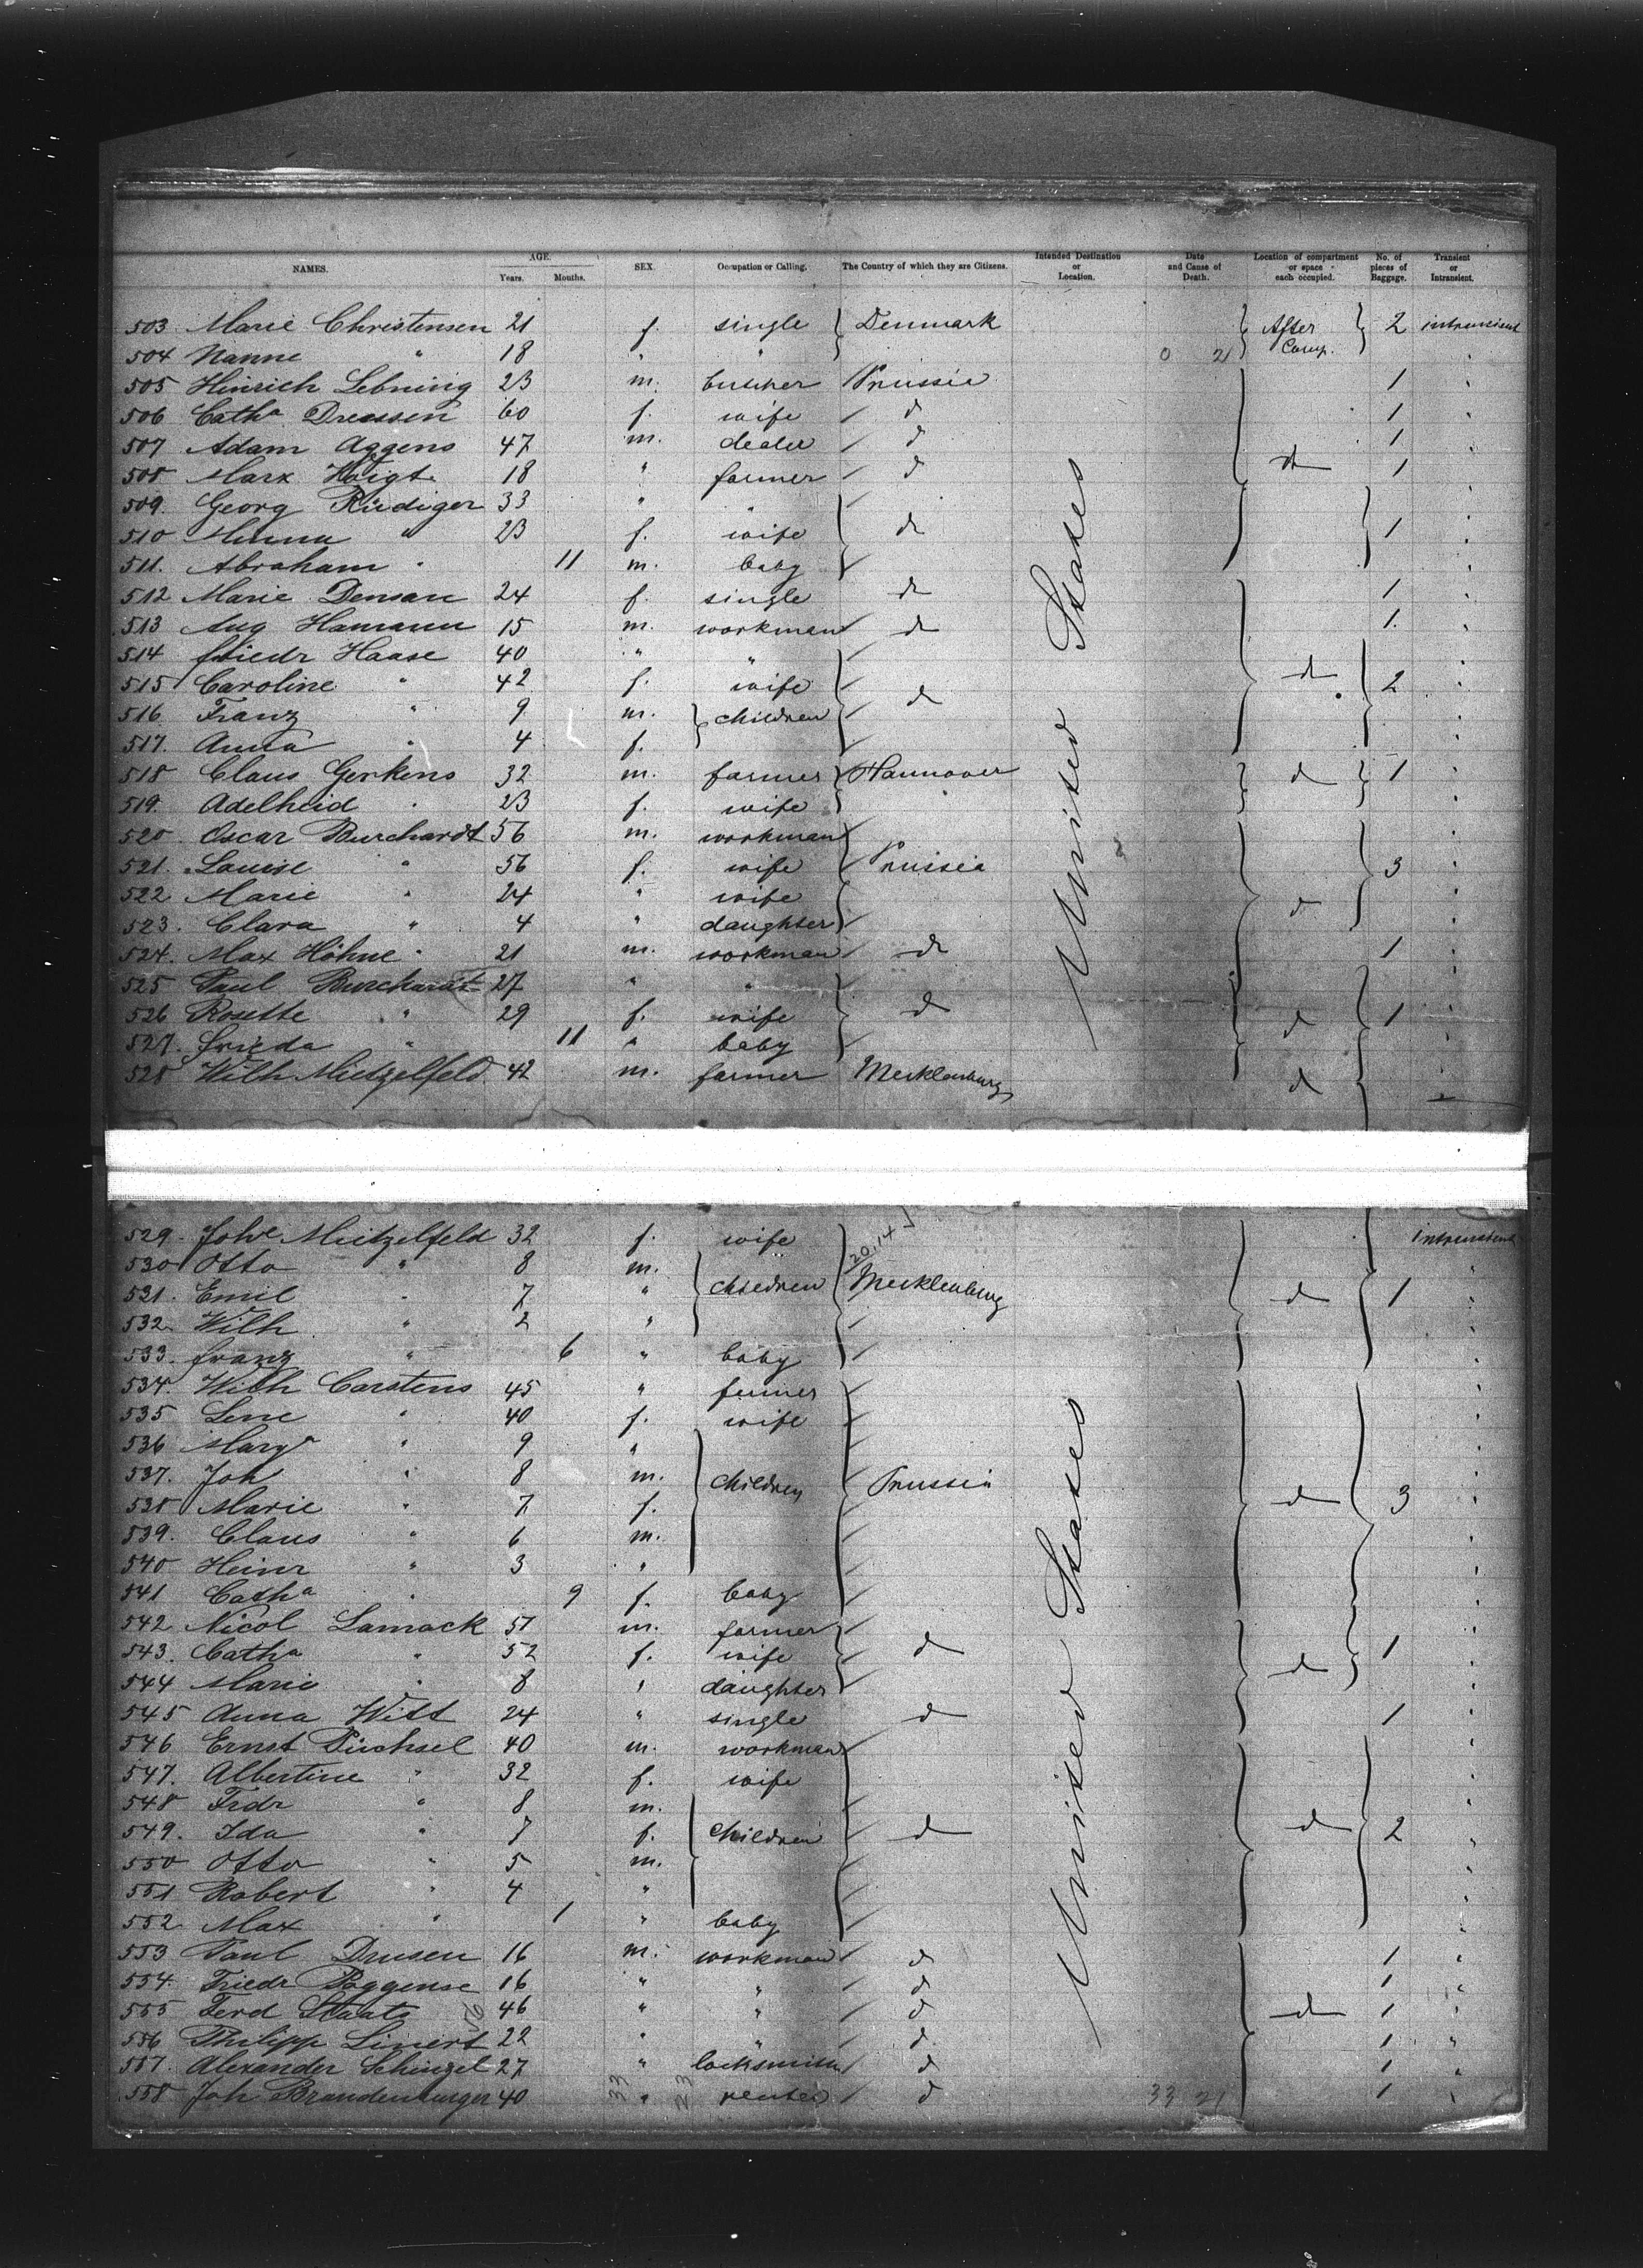 NAMES. AGE. Years. Months. SEX. Occupation or Calling. The Country of which they are Citizens. Intended Destination or Location. Date and Cause of Death. Location of compartment or space each occupied. No. of pieces of Baggage. Transient or Intransient.
503 Marie Christensen 21 f. single Denmark After Comp. 2 intransient
504 Nanne " 18 " " 0 21 "
505 Hinrich Lebning 23 m. butcher Prussia 1 "
506 Catha Dreessen 60 f. wife d 1 "
507 Adam Aggens 47 m. dealer d 1 "
508 Marx Voigt 18 " farmer d d 1 "
509. Georg Rüdiger 33 " " "
510 Minna " 23 f. wife d 1 "
511. Abraham " 11 m. baby "
512 Marie Densau 24 f. single d 1 "
513 Aug Hamann 15 m. workman d 1. "
514 Friedr Haase 40 " " "
515 Caroline " 42 f. wife d d 2 "
516 Franz " 9 m. children "
517. Anna " 4 f. "
518 Claus Gerkens 32 m. farmer Hannover d 1 "
519. Adelheid " 23 f. wife " "
520 Oscar Burchardt 56 m. workman "
521. Louise " 56 f. wife Prussia 3 "
522 Marie " 24 " wife "
523. Clara " 4 " daughter d "
524. Max Höhne " 21 m. workman d 1 "
525 Paul Burchardt 27 " " "
526 Rosette " 29 f. wife d d 1 "
527. Frieda " 11 " baby "
528 Wilh Mietzelfeld 42 m. farmer Mecklenburg d "
United States
529. Johe Mietzelfeld 32 f. wife 20.14 intransient
530 Otto " 8 m. "
531. Emil " 7 " children Mecklenburg d 1 "
532 Wilh " 2 " "
533. Franz " 6 " baby "
534. Wilh Carstens 45 " farmer "
535 Lene " 40 f. wife "
536 Marga " 9 " "
537. Joh " 8 m. children Prussia "
538 Marie " 7 f. d 3 "
539. Claus " 6 m. "
540 Heinr " 3 " "
541 Catha " 9 f. baby "
542 Nicol Lamack 51 m. farmer "
543. Catha " 52 f. wife d d 1 "
544 Marie " 8 " daughter "
545 Anna Witt 24 " single d 1 "
546 Ernst Püchsel 40 m. workman "
547. Albertine " 32 f. wife "
548 Frdr " 8 m. "
549. Ida " 7 f. children d d 2 "
550 Otto " 5 m. "
551 Robert " 4 " "
552 Max " 1 " baby "
553 Paul Drusen 16 m. workman d 1 "
554. Friedr Poggense 16 " " d 1 "
555 Ferd Staats 46 " " d d 1 "
556 Philipp Linert 22 " " d 1 "
557. Alexander Schinzel 27 " locksmith d 1 "
558 Joh Brandenburger 40 33 " 23 d 33 21 1 "
United States